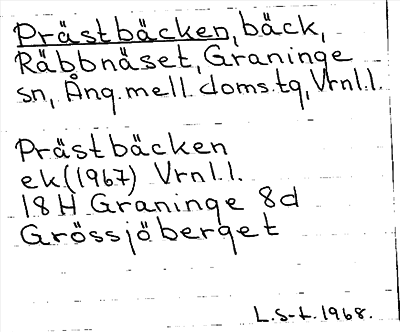 Prästbäcken, bäck,
Räbbnäset, Graninge
sn, Ång. mell. doms. tg, Vrnl.l.
Prästbäcken
ek (1967) Vrnl.l.
18H Graninge 8d
Grössjöberget
L.S-L. 1968.